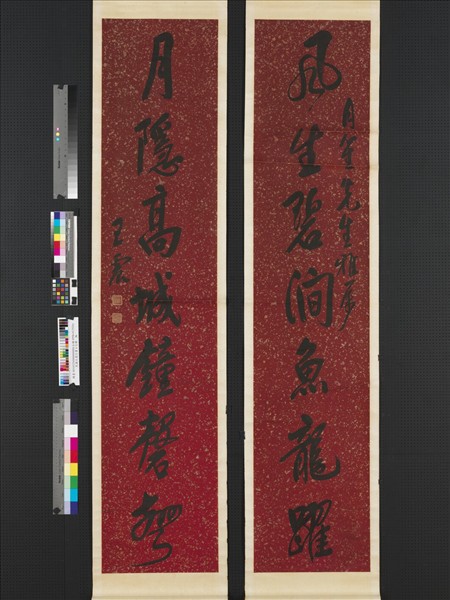 風生碧澗魚龍躍
月笙先生雅屬
月隱高城鐘磬聲
王震